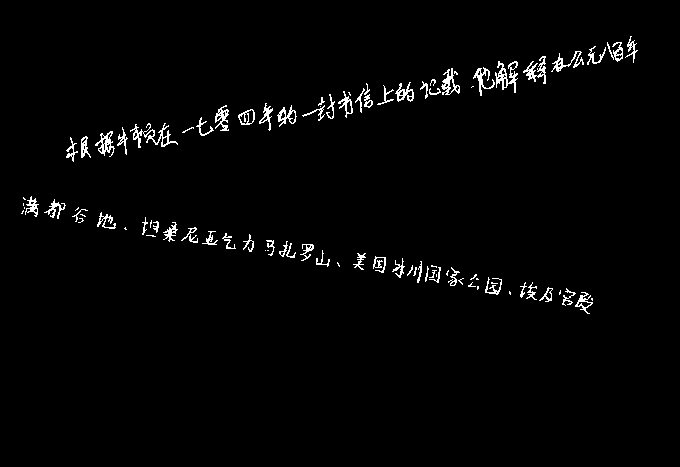 根据牛顿在一七零四年的一封书信上的记载,他解释在公元八百年
满都谷地、坦桑尼亚乞力马扎罗山、美国冰川国家公园、埃及宫殿